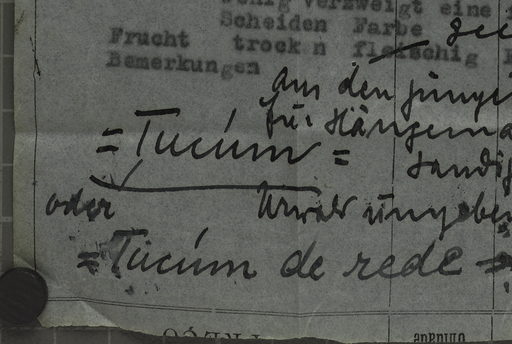 wenig verzweigt eine
Scheiden Farbe
Frucht trock n fleischig
Bemerkungen
aus den jungen
für Hängema
= Tucúm = sandig
oder Urwald umgeben
= Tucúm de rede =